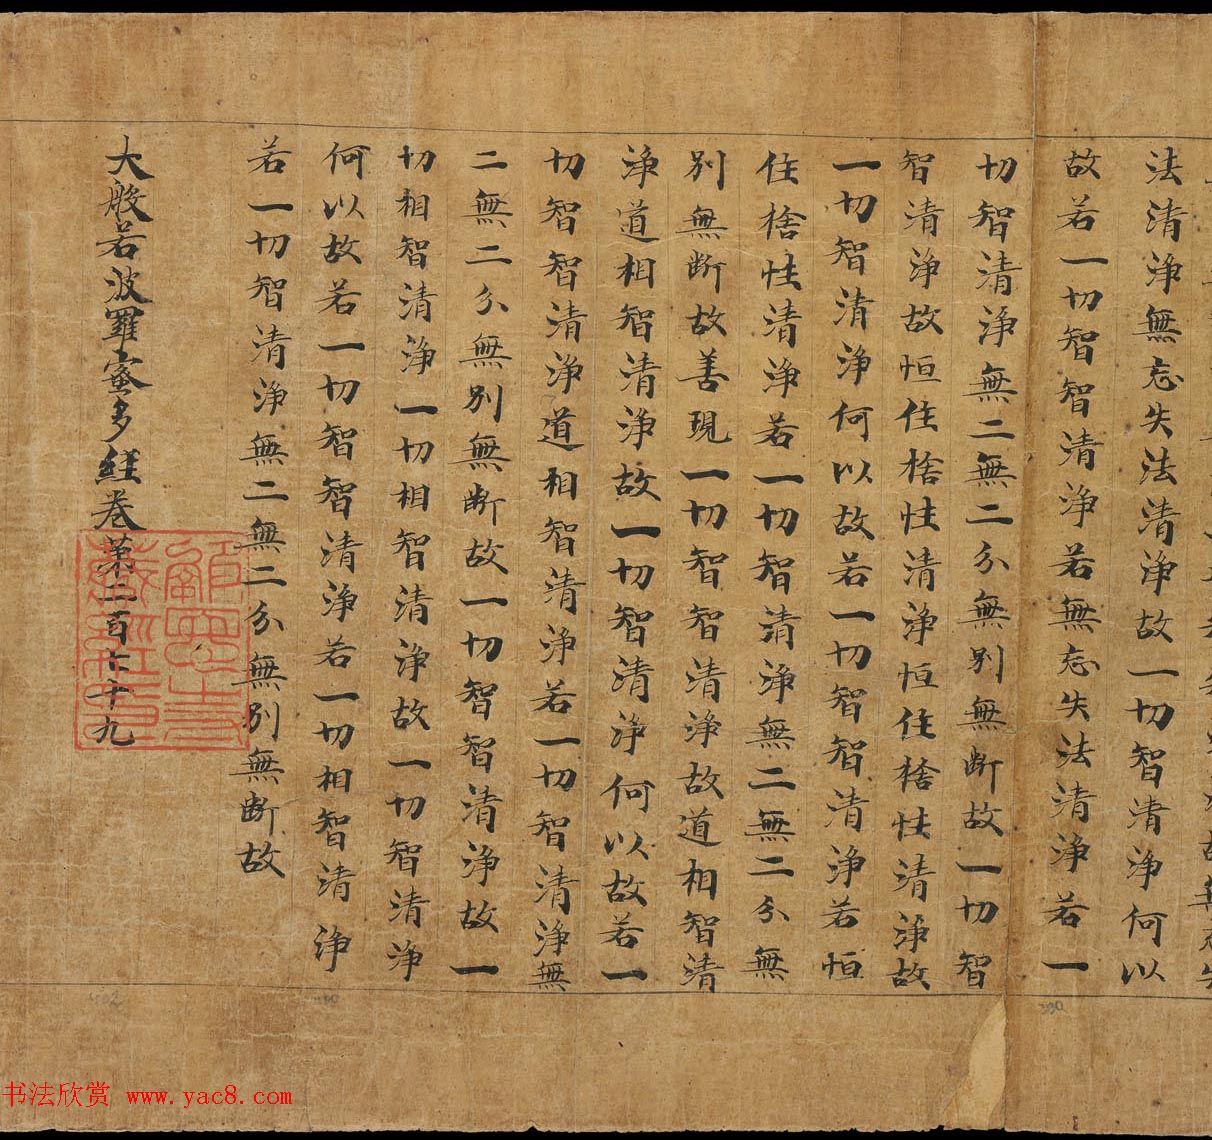 法清淨無忘失法清淨故一切智清淨何以
故若一切智智清淨若無忘失法清淨若一
切智清淨無二無二分無別無斷故一切智
智清淨故恒住捨性清淨恒住捨性清淨故
一切智清淨何以故若一切智智清淨若恒
住捨性清淨若一切智清淨無二無二分無
別無斷故善現一切智智清淨故道相智清
淨道相智清淨故一切智清淨何以故若一
切智智清淨道相智清淨若一切智清淨無
二無二分無別無斷故一切智智清淨故一
切相智清淨一切相智清淨故一切智清淨
何以故若一切智智清淨若一切相智清淨
若一切智清淨無二無二分無別無斷故
大般若波羅蜜多經卷第二百六十九
书法欣赏 www.yac8.com